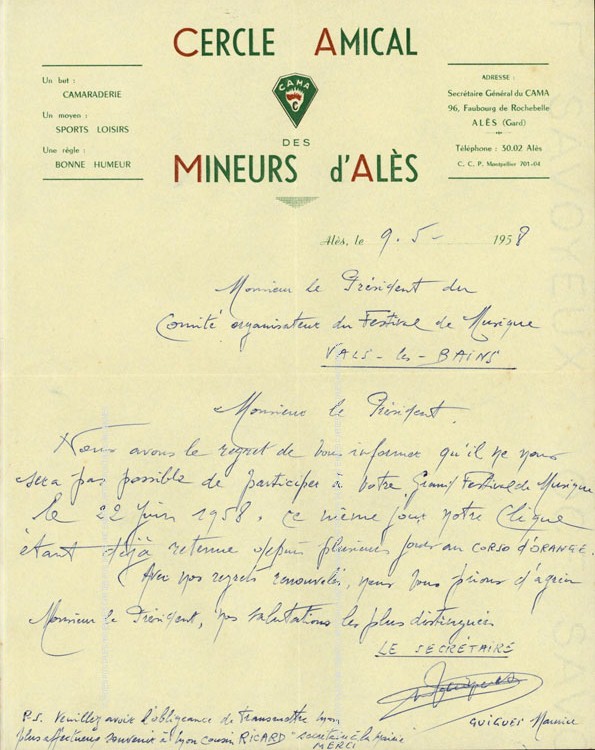 CERCLE AMICAL
Un but :
CAMARADERIE
Un moyen :
SPORTS LOISIRS
Une règle :
BONNE HUMEUR
CAMA
C
DES
MINEURS d'ALÈS
ADRESSE :
Secrétaire Général du CAMA
96, Faubourg de Rochebelle
ALÈS (Gard)
Téléphone : 30.02 Alès
C. C. P. Montpellier 701-04
Alès, le 9-5- 1958
Monsieur le Président du
Comité organisateur du Festival de Musique
VALS-les-BAINS
Monsieur le Président
Nous avons le regret de vous informer qu'il ne nous
sera pas possible de participer à votre Grand Festival de Musique
le 22 Juin 1958, ce même jour notre Clique
étant déjà retenue depuis plusieurs jours au CORSO d'ORANGE.
Avec nos regrets renouvelés, nous vous prions d'agréer
Monsieur le Président, nos salutations les plus distinguées
LE SECRÉTAIRE
GUIGUES Maurice
P.S. Veuillez avoir l'obligeance de transmettre mon
plus affectueux souvenir à mon cousin RICARD secrétaire à la Mairie
MERCI
SAVOYEUX